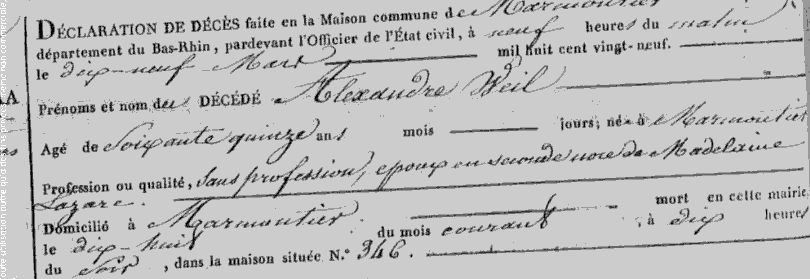 DÉCLARATION DE DÉCÈS faite en la Maison commune de Marmoutier
département du Bas-Rhin, pardevant l'Officier de l'État civil, à neuf heures du matin
le dix-neuf Mars mil huit cent vingt-neuf.
Prénoms et nom des DÉCÉDÉ Alexandre Weil
Agé de Soixante quinze ans mois jours; né à Marmoutier
Profession ou qualité, sans profession, epoux en seconde noce de Madelaine
Lazare.
Domicilié à Marmoutier. mort en cette mairie
le dix-huit du mois courant, à dix heures
du Soir, dans la maison située N.° 346.